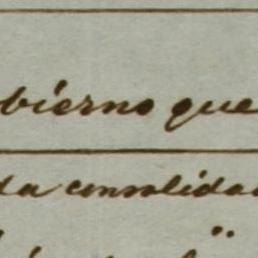 bierno que
da consolida